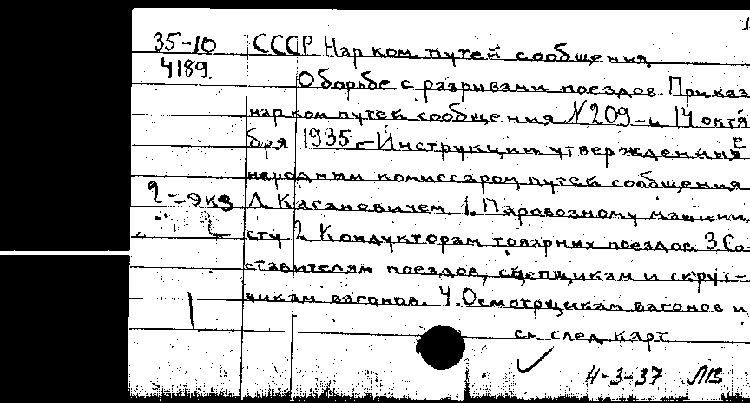 35-10 СССР Нар ком путей сообщения
4189. О борьбе с разрывами поездов. Приказ
нар ком путей сообщения N209-ц 14 октя
бря 1935г. Инструкции утвержденные
народным комиссаром путей сообщения
2-экз Л. Кагановичем 1. Паровозному машини
сту 2. Кондукторам товарных поездов. 3. Со-
ставителям поездов, сцепщикам и скруг-
чикам вагонов. 4. Осмотрщикам вагонов и
см. след. карт.
4-3-37 ЛВ